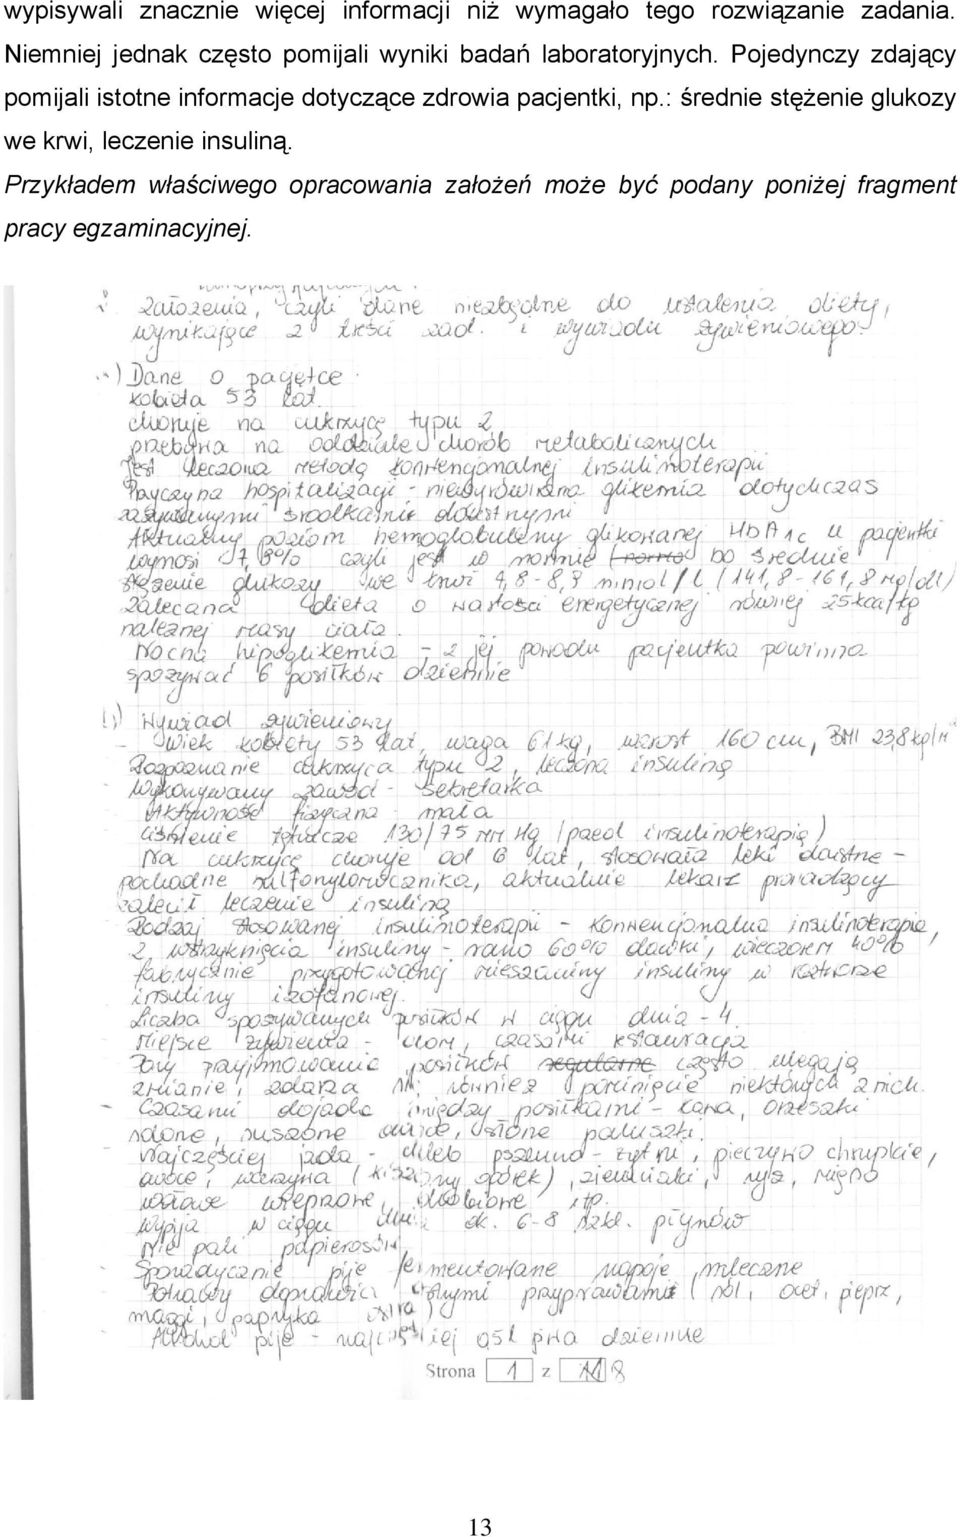 wypisywali znacznie więcej informacji niż wymagało tego rozwiązanie zadania.
Niemniej jednak często pomijali wyniki badań laboratoryjnych. Pojedynczy zdający
pomijali istotne informacje dotyczące zdrowia pacjentki, np.: średnie stężenie glukozy
we krwi, leczenie insuliną.
Przykładem właściwego opracowania założeń może być podany poniżej fragment
pracy egzaminacyjnej.
Założenia, czyli dane niezbędne do ustalenia diety,
wynikające z treści zad. i wywiadu żywieniowego.
a) Dane o pacjętce
kobieta 53 lat.
choruje na cukrzycę typu 2
przebywa na oddziale chorób metabolicznych
Jest leczona metodą konwencjonalnej insulinoterapii
Przyczyna hospitalizacji - niewyrównana glikemia dotychczas
zażywanymi środkami doustnymi
Aktualny poziom hemoglobuleny glikowanej HbA1c u pacjentki
wynosi 7,8% czyli jest w normie bo średnie
stężenie glukozy we krwi 7,8-8,9 mmol/l (141,8-161,8 mg/dl)
Zalecana dieta o wartości energetycznej równej 25kcal/kg
należnej masy ciała.
Nocna hipoglikemia - z jej powodu pacjentka powinna
spożywać 6 posiłków dziennie
b) Wywiad żywieniowy
- Wiek kobiety 53 lat, waga 61kg, wzrost 160 cm, BMI 23,8 kg/m
Rozpoznanie cukrzyca typu 2, leczona insuliną
Wykonywany zawód - sekretarka
Aktywność fizyczna - mała
ciśnienie tętnicze 130/75 mm Hg (przed insulinoterapią)
Na cukrzycę choruje od 6 lat, stosowała leki doustne -
pochodne sulfonylomocznika, aktualnie lekarz prowadzący
zalecił leczenie insuliną
Rodzaj stosowanej insulinoterapii - konwencjonalna insulinoterapia,
2 wstrzyknięcia insuliny - rano 60% dawki, wieczorem 40%
fabrycznie przygotowanej mieszaniny insuliny w roztworze
insuliny izofanowej.
Liczba spożywanych posiłków w ciągu dnia - 4
Miejsce żywienia - dom, czasami restauracja
Pory przyjmowania posiłków regularne często ulegają
zmianie, zdarza również pominięcie niektórych z nich.
- Czasami dojada między posiłkami - kawa, orzeszki
solone, suszone owoce, słone paluszki.
Najczęściej jada - chleb pszenno - żytni, pieczywo chrupkie,
owoce, warzywa (kiszony ogórek), ziemniaki, ryż, mięso
wołowe wieprzone, drobione, itp.
Wypija w ciągu dnia ok. 6-8 szkl. płynów
Nie pali papierosów
Sporadycznie pije fermentowane napoje mleczne
Potrawy doprawia ostrymi przyprawami (sól, ocet, pieprz,
maggi, papryka ostra)
Alkohol pije - najczęściej 0,5l piwa dziennie
Strona 1 z 8
13